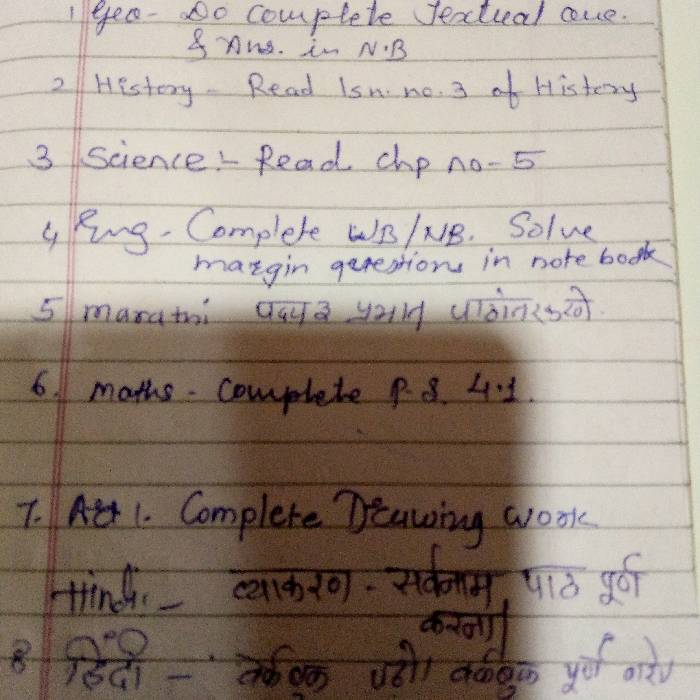 1 Geo- Do Complete Textual que.
& Ans. in N.B
2 History - Read lsn. no. 3 of History
3 Science:- Read chp no- 5
4, Eng - Complete WB/NB. Solve
margin questions in note book
5 marathi पद्य व पाठांतर करणे.
6. maths - Complete P.S. 4.1.
7. Art 1. Complete Drawing work
Hindi:- व्याकरण - सर्वनाम पाठ पूर्ण
करना।
8 हिंदी - वर्कबुक पढो। वर्कबुक पूर्ण करे।